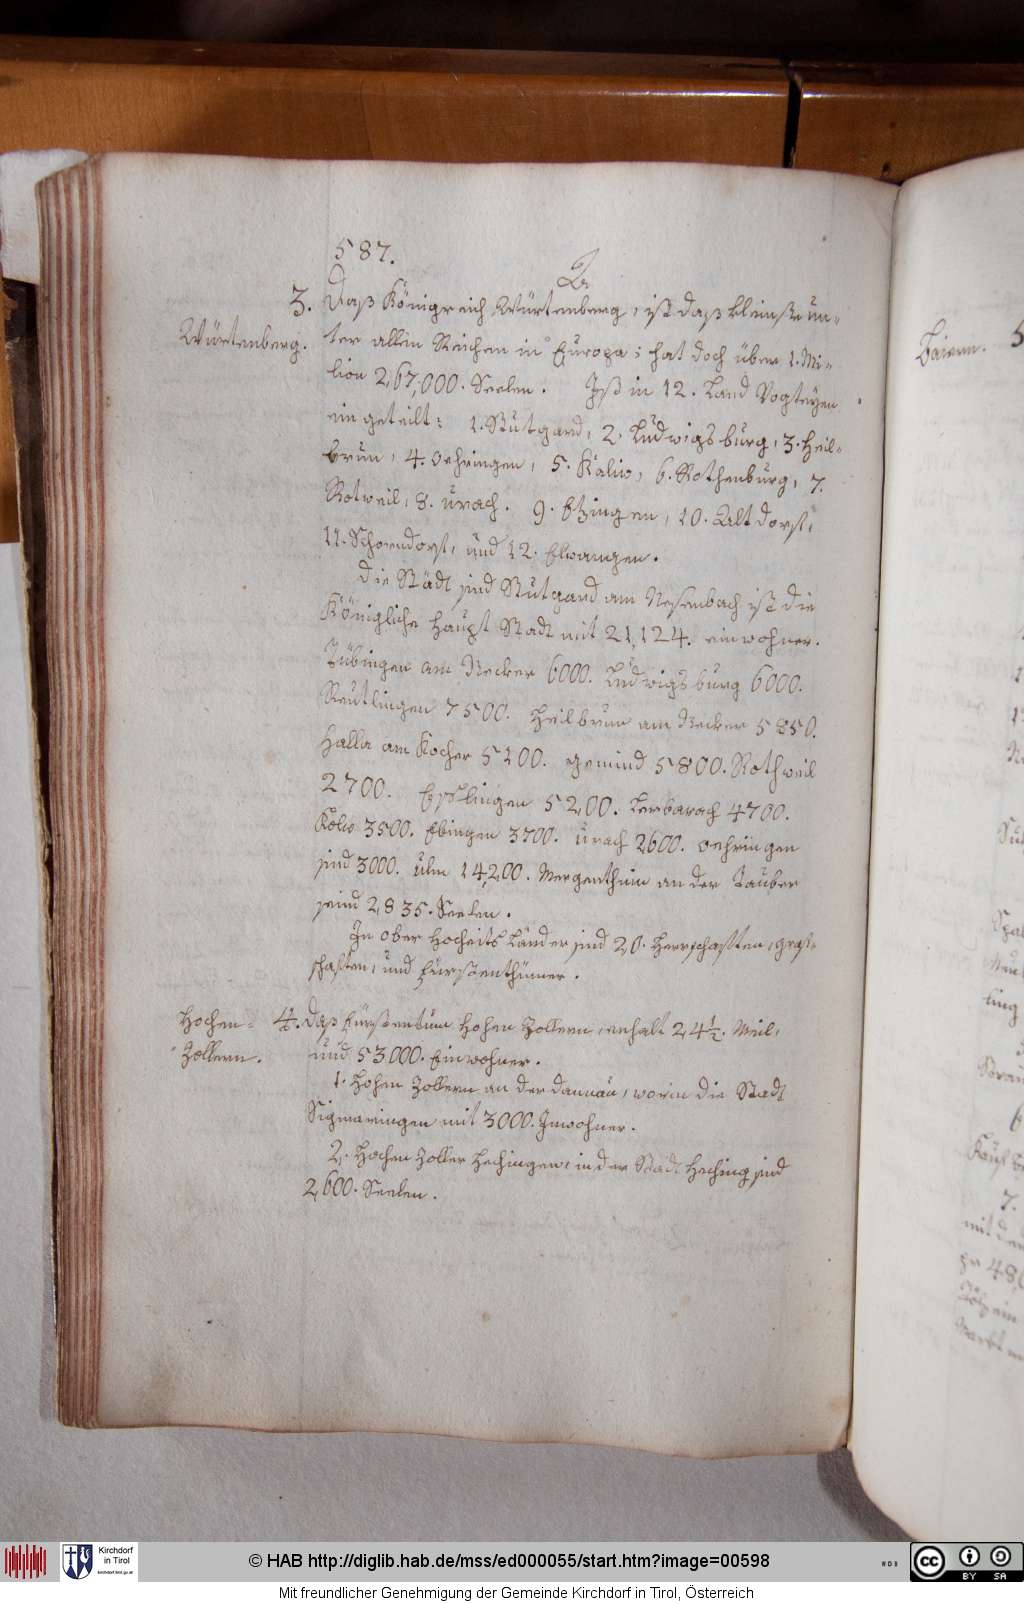 587.
3. Daß Königreich Würtenberg, ist daß kleinste un=
Würtenberg. ter allen Reichen in Europa; hat doch über 1. Mi=
lion 2,67,000. Seelen. Ist in 12. Land Vogteyen
ein geteilt: 1. Stutgard, 2. Ludwigsburg, 3. Heil=
brun, 4. Oehringen, 5. Kaliw, 6. Rothenburg, 7.
Rotweil, 8. Urach. 9. Etzingen, 10. Alt dorf,
11. Schorndorf, und 12. Elwangen.
Die Städt sind Stutgard am Nesenbach ist die
Königliche Haupt Stadt mit 21,124. einwohner.
Tübingen am Necker 6000. Ludwigsburg 6000.
Reutlingen 7500. Heilbrunn am Necker 5850.
Halla am Kocher 5200. gemind 5800. Rothweil
2700. Eßlingen 5200. Lerbarach 4700.
Kolw 3500. Ebingen 3700. Urach 2600. Oehringen
sind 3000. Ulm 14,200. Mergentheim an der Tauber
seind 2,835. Seelen.
In ober Hocheits Länder sind 20. Herrschaften, Graf=
schaften, und Fürstenthümer.
Hochen= 4. Daß Fürstentum Hohen Zollern, enhalt 24½. Meil,
Zollern. und 53000. Einwohner.
1. Hohen Zollern an der Dannau, worin die Stadt
Sigmaringen mit 3000. Inwohner.
2. Hochen Zoller Hechingen, in der Stadt Heching sind
2,600. Seelen.
Baiern. 5
© HAB http://diglib.hab.de/mss/ed000055/start.htm?image=00598
Kirchdorf
in Tirol
kirchdorf.tirol.gv.at
WDB
CC BY SA
Mit freundlicher Genehmigung der Gemeinde Kirchdorf in Tirol, Österreich